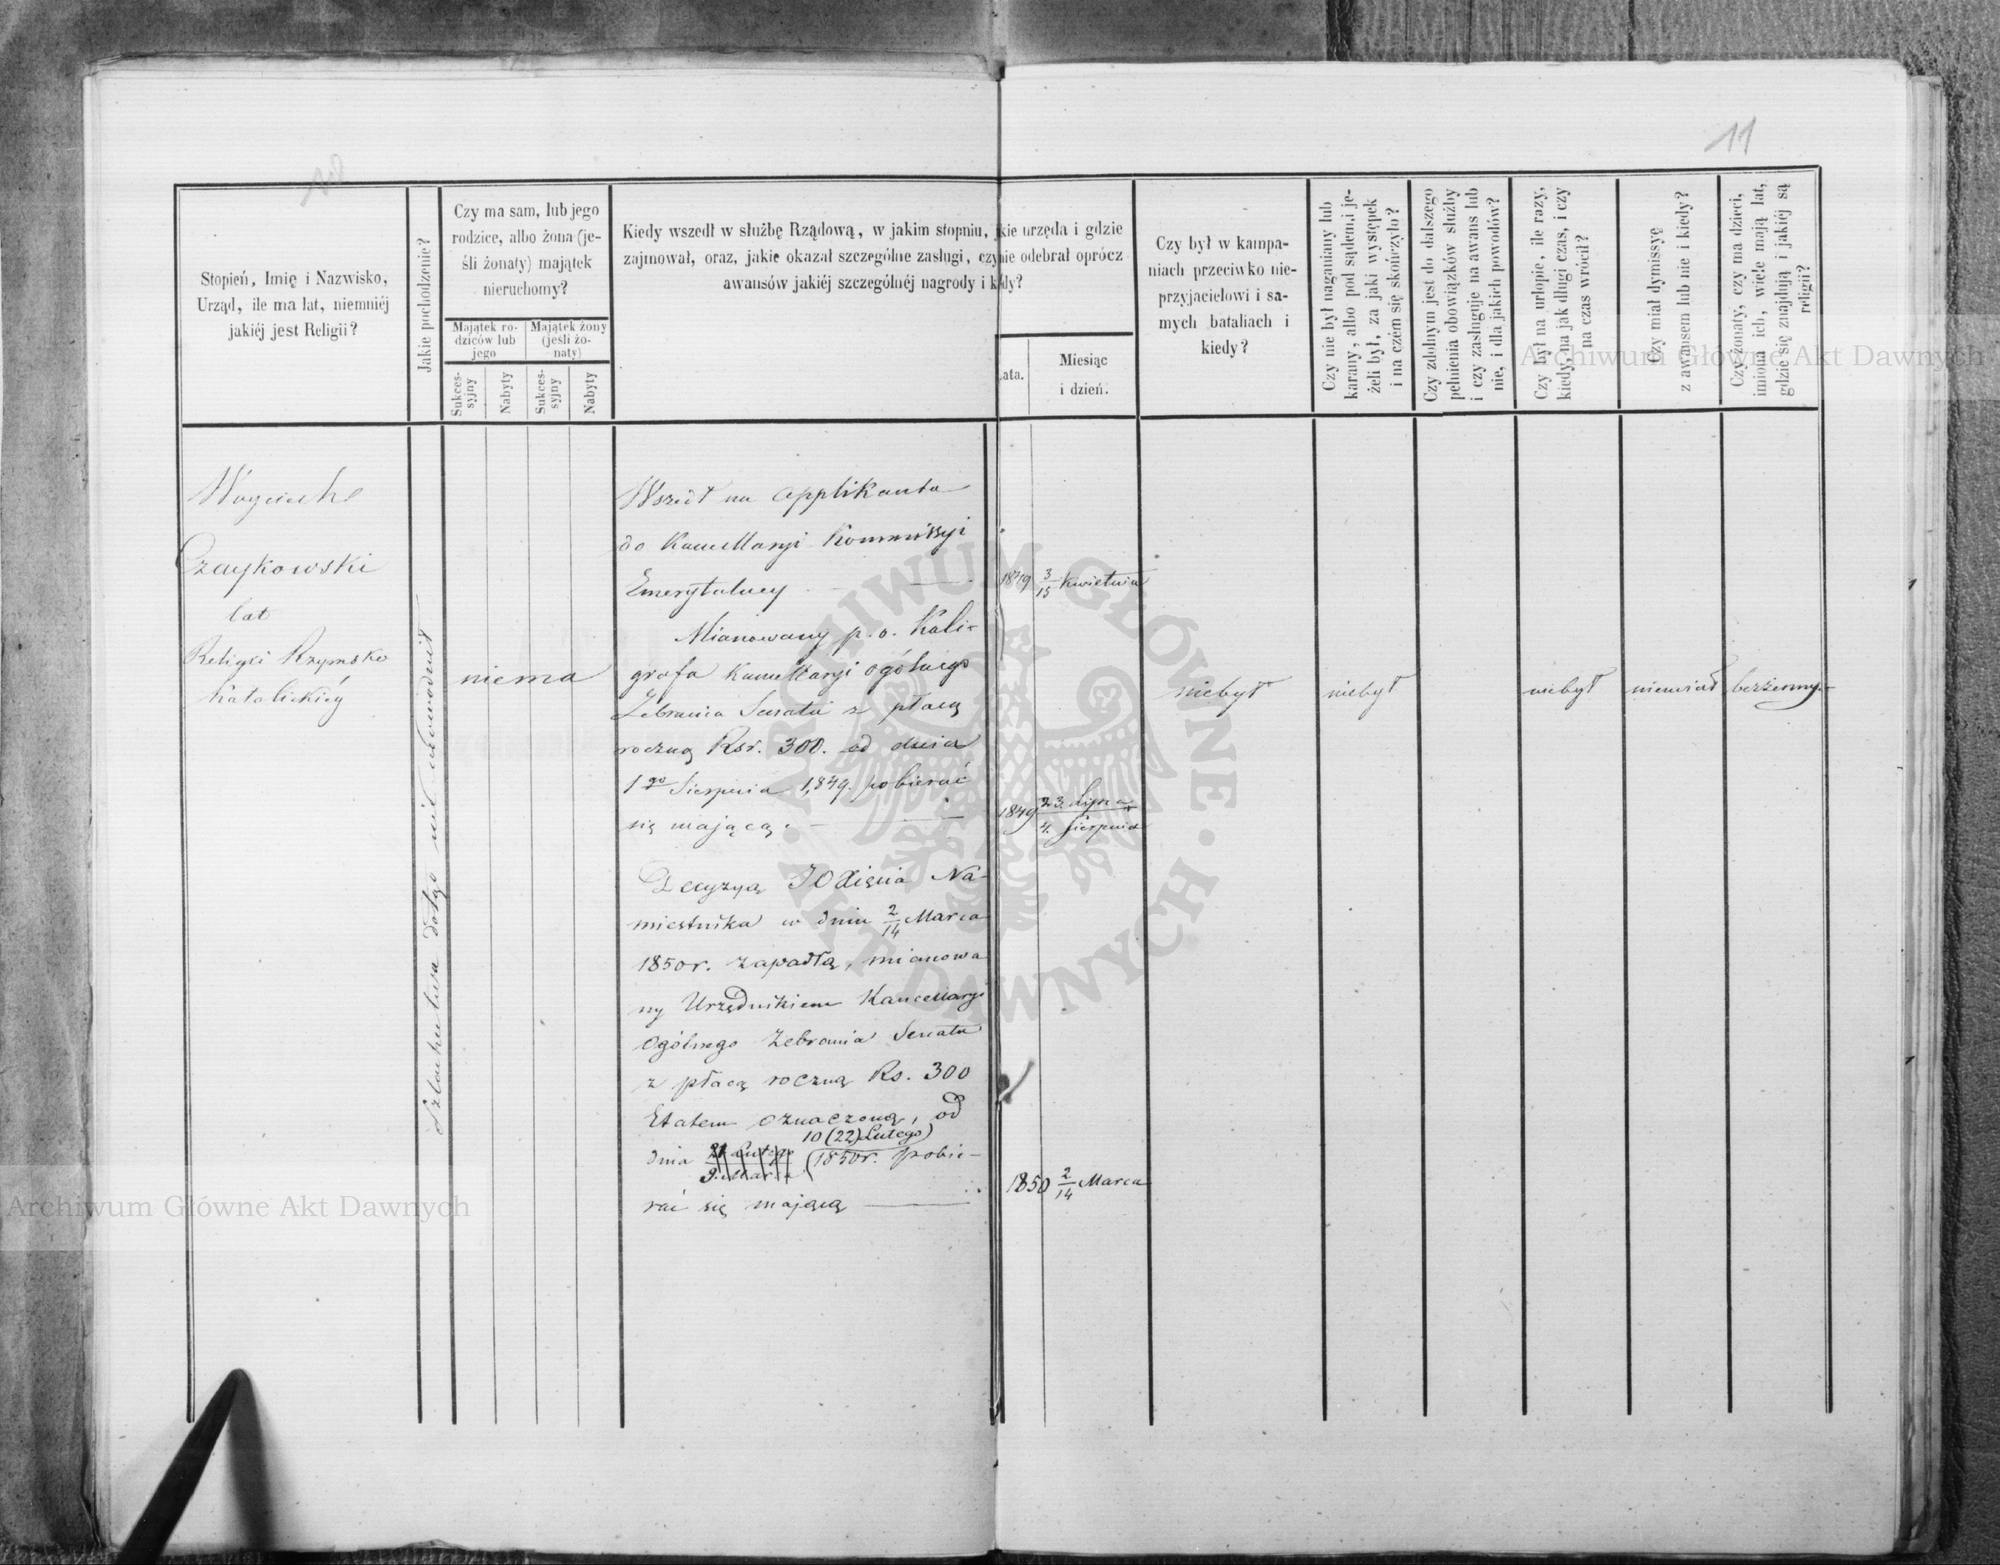 11
Stopień, Imię i Nazwisko,
Urząd, ile ma lat, niemniéj
jakiéj jest Religii?
Jakie pochodzenie?
Czy ma sam, lub jego
rodzice, albo żona (je-
śli żonaty) majątek
nieruchomy?
Majątek ro-
dziców lub
jego
Majątek żony
(jeśli żo-
naty)
Sukces-
syjny
Nabyty
Sukces-
syjny
Nabyty
Kiedy wszedł w służbę Rządową, w jakim stopniu, jkie urzęda i gdzie
zajmował, oraz, jakie okazał szczególne zasługi, czy nie odebrał oprócz
awansów jakiéj szczególnéj nagrody i kidy?
ata.
Miesiąc
i dzień.
Czy był w kampa-
niach przeciwko nie-
przyjacielowi i sa-
mych bataliach i
kiedy?
Czy nie był naganiany lub
karany, albo pod sądem i je-
żeli był, za jaki występek
i na czém się skończyło?
Czy zdolnym jest do dalszego
pełnienia obowiązków służby
i czy zasługuje na awans lub
nie, i dla jakich powodów?
Czy był na urlopie, ile razy,
kiedy, na jak długi czas, i czy
na czas wrócił?
Czy miał dymissyę
z awansem lub nie i kiedy?
Czy żonaty, czy ma dzieci,
imiona ich, wiele mają lat,
gdzie się znajdują i jakiéj są
religii?
Woyciech
Czaykowski
lat
Religii Rzymsko
Katolickiéy
Szlachectwa dotąd nie udowodnił
niema
Wszedł na applikanta
do Kancellaryi Kommissyi
Emerytalney
1849 3/15 Kwietnia
Mianowany p. o. Kali-
grafa Kancellaryi Ogólnego
Zebrania Senatu z płacą
roczną Rsr. 300. od dnia
1go Sierpnia 1849. pobierać
się mającą.
1849 23. Lipca/4. Sierpnia
Decyzyą JO Xięcia Na-
miestnika w dniu 2/14 Marca
1850r. zapadłą, mianowa
ny Urzędnikiem Kancellaryi
Ogólnego Zebrania Senatu
z płacą roczną Rs. 300
Etatem oznaczoną, od
10 (22) Lutego)
dnia (1850r. pobie-
rać się mającą
1850 2/14 Marca
niebył
niebył
niebył
niemiał
bezżenny
ARCHIWUM GŁÓWNE
AKT DAWNYCH
Archiwum Główne Akt Dawnych
Archiwum Główne Akt Dawnych